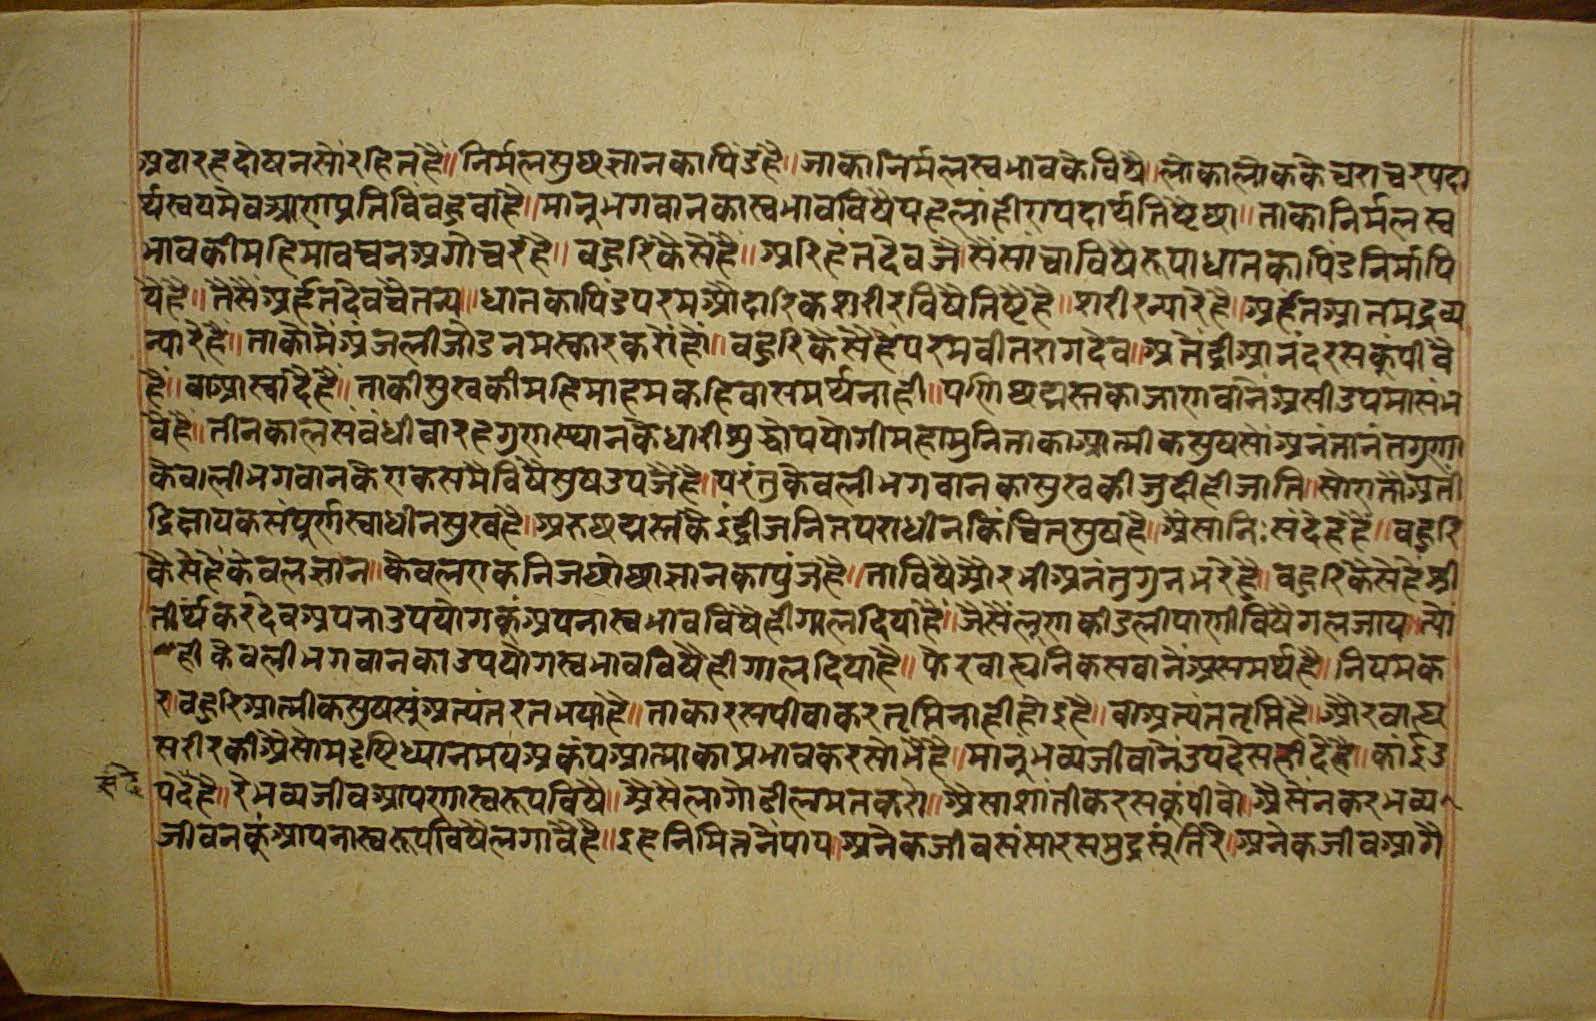 अठारहदोषनसौंरहितहै॥निर्मलसुध्यज्ञानकापिंडहै॥जाकानिर्मलस्वभावकेविषै॥लोकालोककेचराचरपदा
र्थस्वयमेवआणप्रतिविंवहूवाहै॥मानुभगवानकास्वभावविषैपहलांहीएपदार्थतिष्टैछा॥ताकानिर्मलस्व
भावकीमहिमावचनअगोचरहै॥वहुरिकैसेहै॥अरिहंतदेवजैसैसांचाविषैरूपाधातकापिंडनिर्मापि
येहै॥तैसैअर्हंतदेवचैतन्य॥धातकापिंडपरमऔदारिकशरीरविषैतिष्टैहै॥शरीरन्यारैहै॥अर्हंतआतमद्रव्य
न्यारैहै॥ताकौमैअंजलीजोडनमस्कारकरौंहौं॥वहुरिकैसेहैंपरमवीतरागदेव॥अतेंद्रीआनंदरसकूंपीवै
है॥वाआस्वादैहै॥ताकीसुखकीमहिमाहमकहिवासमर्थनाही॥पणिछद्मस्तकाजाणवानैअसीउपमासंभ
वैहै॥तीनकालसंवंधीवारहगुणस्थानकेधारीशुद्धोपयोगीमहामुनिताकाआत्मीकसुषसौंअनंतानंतगुणा
केवालीभगवानकैएकसमैविषैसुषउपजैहै॥परंतुकेवलीभगवानकासुखकीजुदीहीजाति॥सोएतौअतीं
द्रिक्षायकसंपूर्णस्वाधीनसुखहै॥अरुछद्मस्तकैइंद्रीजनितपराधीनकिंचितसुषहै॥अैसानिःसंदेहहै॥वहुरि
कैसेहैंकेवलज्ञान॥केवलएकनिजछोछाज्ञानकापुंजहै॥ताविषैऔरभीअनंतगुनभरेहै॥वहुरिकैसेहैश्री
तीर्थंकरदेवअपनाउपयोगकूंअपनास्वभावविषैहीगालदियाहै॥जैसैंलूणकीडलीपाणीविषैगलजाय॥त्यौं
हीकेवलीभगवानकाउपयोगस्वभावविषैहीगालदियाहै॥फेरवाह्यनिकसवानैअसमर्थहै॥नियमक
र॥वहुरिआत्मीकसुषसूंअत्यंतरतभयाहै॥ताकारसपीवाकरतृप्तिनाहीहोइहै॥वाअत्यंततृप्तिहै॥औरवाह्य
सरीरकीअैसीसौमदृष्टिध्यानमयअकंपआत्माकाप्रभावकरसोभैहै॥मानुंभव्यजीवांनैउपदेसहीदेहै॥कांईउ
पदेहै॥रेभव्यजीवआपणास्वरूपविषै॥अैसैलागोढीलमतकरो॥अैसाशांतीकरसकूंपीवो॥अैसैनकरभव्य
जीवनकूंआपनास्वरूपविषैलगावैहै॥इहनिमित्तनैपाय॥अनेकजीवसंसारसमुद्रसूंतिरे॥अनेकजीवआगै